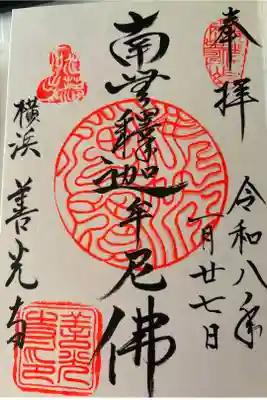 奉拝
令和八年
一月廿七日
南無釋迦牟尼佛
横浜 善光寺
善光
寺印